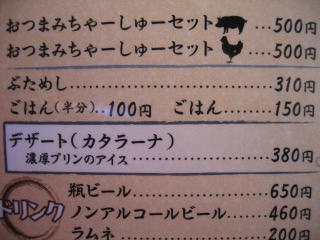 おつまみちゃーしゅーセット …500円
おつまみちゃーしゅーセット …500円
ぶためし……………………310円
ごはん(半分)‥100円 ごはん………150円
デザート(カタラーナ)
濃厚プリンのアイス………………380円
ドリンク
瓶ビール………………650円
ノンアルコールビール……460円
ラムネ………………200円